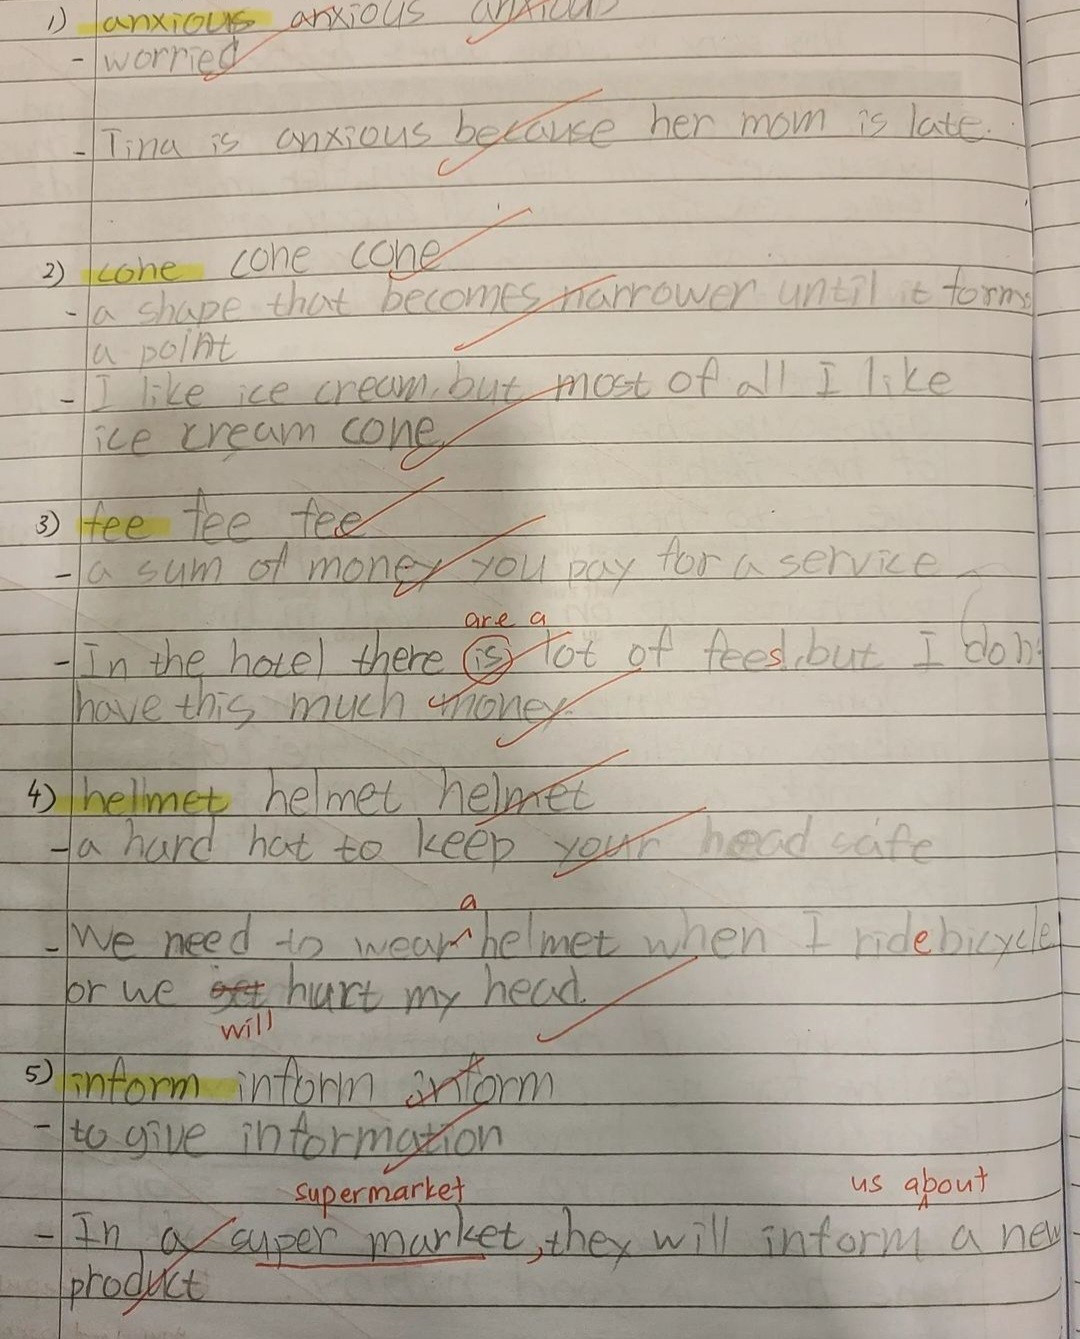 1) anxious anxious anxious
- worried
- Tina is anxious because her mom is late.
2) cone cone cone
- a shape that becomes narrower until it forms
a point
- I like ice cream, but most of all I like
ice cream cone.
3) fee fee fee
- a sum of money you pay for a service
are a
- In the hotel there is lot of fees, but I don't
have this much money.
4) hellmet helmet helmet
- a hard hat to keep your head safe
a
- We need to wear helmet when I ride bicycle
or we get hurt my head.
will
5) inform inform inform
- to give information
supermarket us about
- In a super market, they will inform a new
product